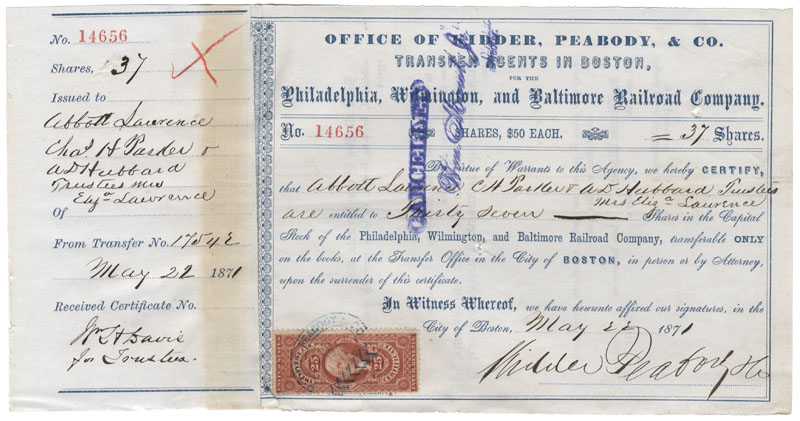 No. 14656
Shares, 37
Issued to
Abbott Lawrence
Chas H Parker &
A D Hubbard
Trustees Mrs
Eliza Lawrence
Of
From Transfer No. 1754
May 22 1871
Received Certificate No.
Wm H Davis
for Trustees.
OFFICE OF KIDDER, PEABODY, & CO.
TRANSFER AGENTS IN BOSTON,
FOR THE
Philadelphia, Wilmington, and Baltimore Railroad Company.
No. 14656 SHARES, $50 EACH. = 37 Shares.
By virtue of Warrants to this Agency, we hereby CERTIFY,
that Abbott Lawrence C H Parker & A D Hubbard Trustees
Mrs Eliza Lawrence
are entitled to Thirty Seven Shares in the Capital
Stock of the Philadelphia, Wilmington, and Baltimore Railroad Company, transferable ONLY
on the books, at the Transfer Office in the City of BOSTON, in person or by Attorney,
upon the surrender of this certificate.
In Witness Whereof, we have hereunto affixed our signatures, in the
City of Boston, May 22 1871
Kidder Peabody & Co
CANCELLED
PEABODY & CO
25 25